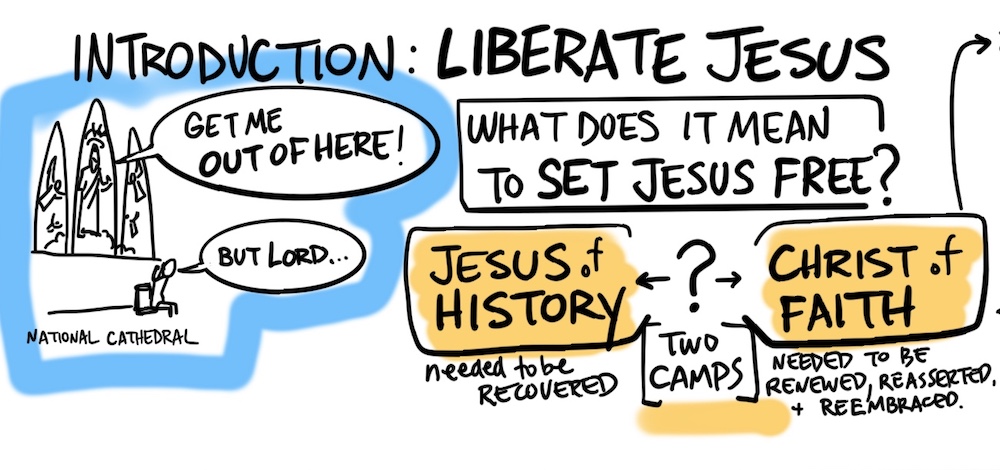 INTRODUCTION: LIBERATE JESUS
GET ME
OUT OF HERE!
BUT LORD...
NATIONAL CATHEDRAL
WHAT DOES IT MEAN
TO SET JESUS FREE?
JESUS of
HISTORY
needed to be
RECOVERED
?
TWO
CAMPS
CHRIST of
FAITH
NEEDED TO BE
RENEWED, REASSERTED,
+ REEMBRACED.